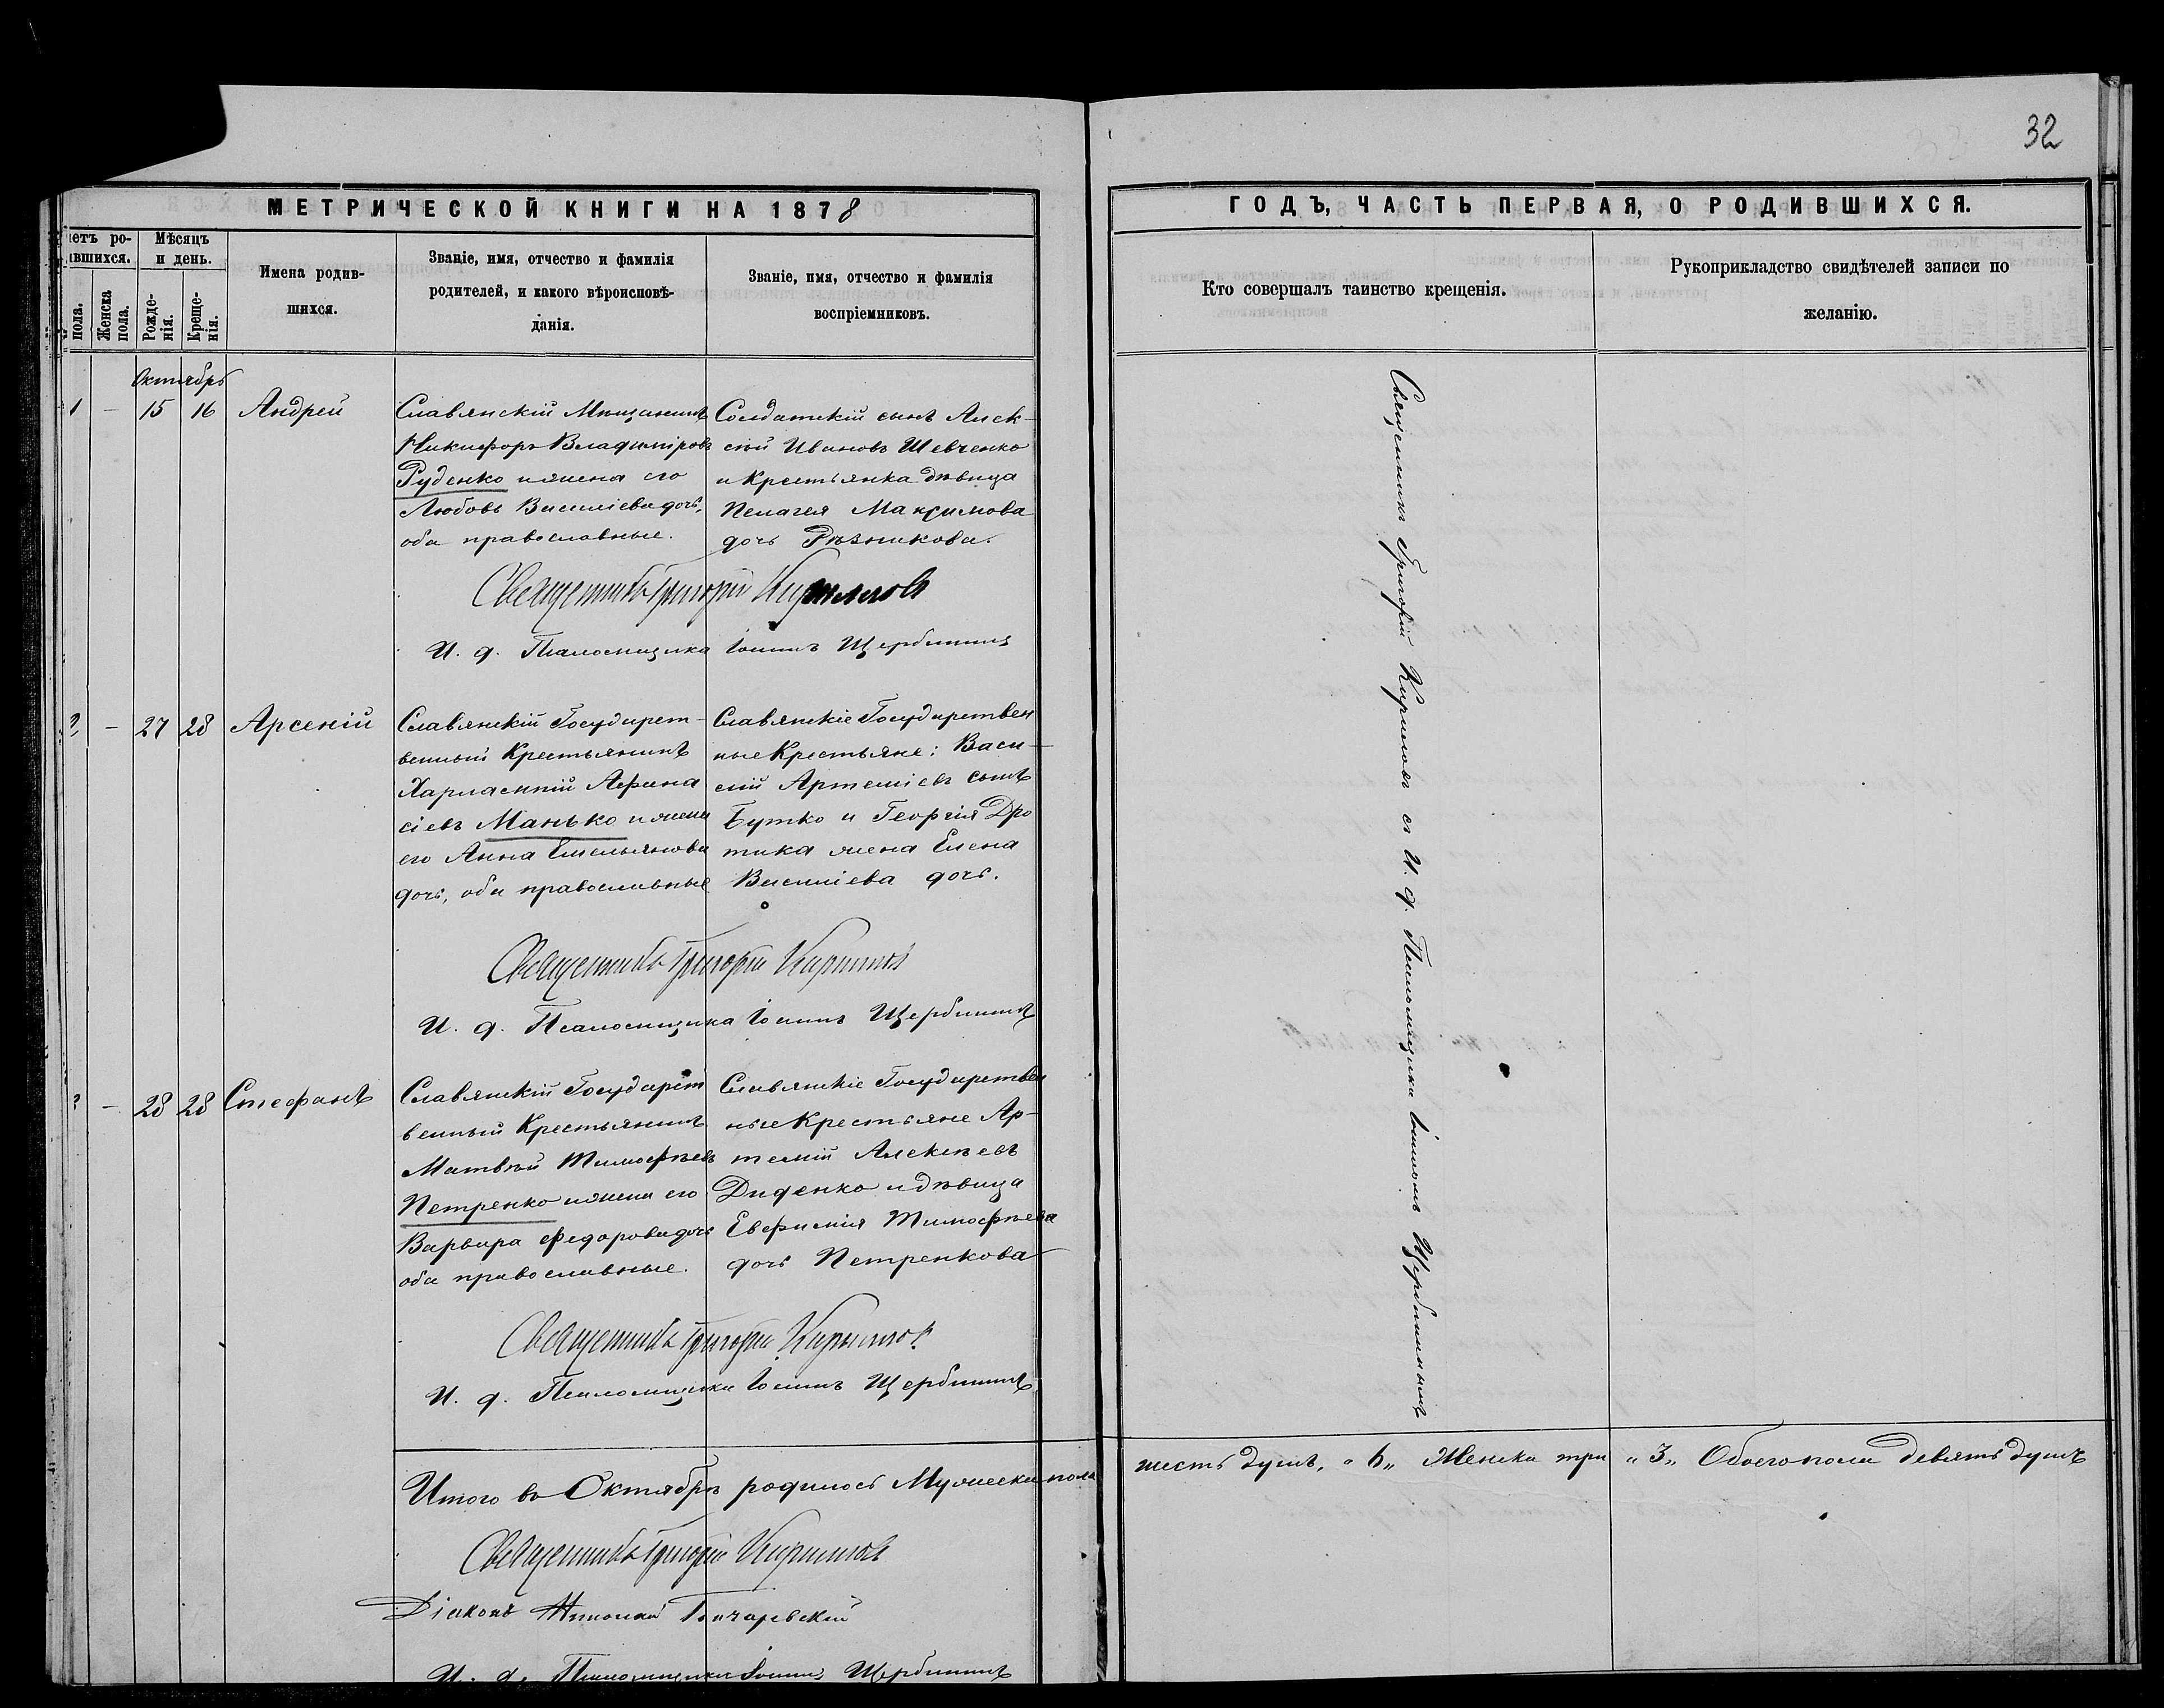 32
МЕТРИЧЕСКОЙ КНИГИ НА 1878
ГОДЪ, ЧАСТЬ ПЕРВАЯ, О РОДИВШИХСЯ.
етъ ро-
вшихся.
пола.
Женска пола.
Мѣсяцъ и день.
Рожде-нія.
Креще-нія.
Имена родив-
шихся.
Званіе, имя, отчество и фамилія
родителей, и какого вѣроисповѣ-
данія.
Званіе, имя, отчество и фамилія
воспріемниковъ.
Кто совершалъ таинство крещенія.
Рукоприкладство свидѣтелей записи по
желанію.
Октябрь
1 — 15 16 Андрей
Славянскій Мѣщанинъ
Никифоръ Владиміровъ
Руденко и жена его
Любовь Василіева дочь,
оба православные.
Солдатскій сынъ Алек-
сѣй Ивановъ Шевченко
и Крестьянка дѣвица
Пелагея Максимова
дочь Рѣзникова.
Священникъ Григорій Кириловъ
И. д. Псаломщика Іоаннъ Щербининъ
2 — 27 28 Арсеній
Славянскій Государст-
венный Крестьянинъ
Харлампій Афана
сіевъ Манько и жена
его Анна Емельянова
дочь, оба православные
Славянскіе Государствен
ные Крестьяне: Васи-
лій Артеміевъ сынъ
Бутко и Георгія Дро
тика жена Елена
Василіева дочь.
Священникъ Григорій Кириловъ
И. д. Псаломщика Іоаннъ Щербининъ
— 28 28 Стефанъ
Славянскій Государст
венный Крестьянинъ
Матвѣй Тимофѣевъ
Петренко и жена его
Варвара Федорова дочь
оба православные.
Славянскіе Государствен
ные Крестьяне Ар-
темій Алексѣевъ
Диденко и дѣвица
Евфимія Тимофѣева
дочь Петренкова
Священникъ Григорій Кириловъ
И. д. Псаломщика Іоаннъ Щербининъ
Священникъ Григорій Кириловъ съ И. д. Псаломщика Іоанномъ Щербининымъ
Итого въ Октябрѣ родилось Мужеска пола шесть душъ, „6„ Женска три „3„ Обоего пола девять душъ
Священникъ Григорій Кириловъ
Діаконъ Николай Гончаревскій
И. д. Псаломщика Іоаннъ Щербининъ